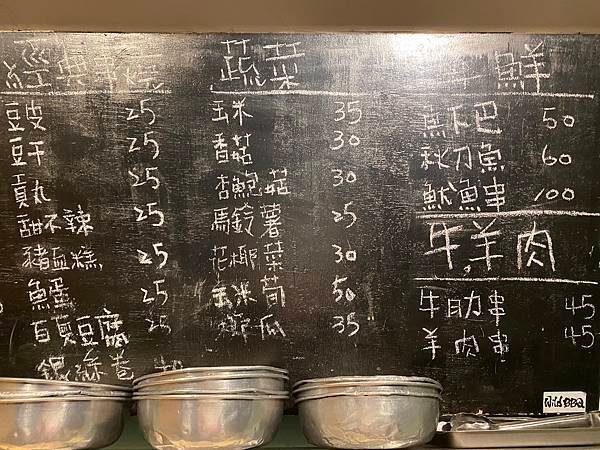 經典串燒
豆皮 25
豆干 25
貢丸 25
甜不辣 25
豬血糕 25
鱈 25
百頁豆腐 25
銀絲卷
蔬菜
玉米 35
香菇 30
杏鮑菇 30
馬鈴薯 25
花椰菜 30
玉米筍 50
瓜 35
海鮮
魚下巴 50
秋刀魚 60
魷魚串 100
牛.羊肉
牛肋串 45
羊肉串 45
Wild BBQ